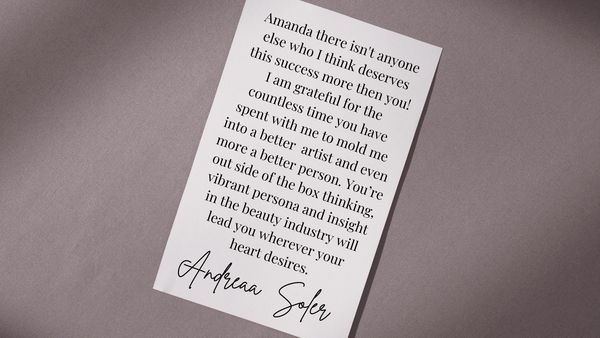 Amanda there isn't anyone
else who I think deserves
this success more then you!
I am grateful for the
countless time you have
spent with me to mold me
into a better artist and even
more a better person. You're
out side of the box thinking,
vibrant persona and insight
in the beauty industry will
lead you wherever your
heart desires.
Andreaa Soler